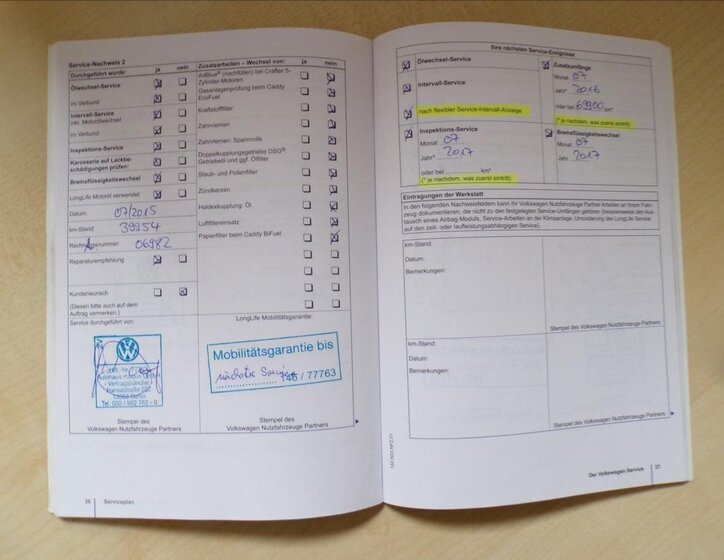 Service-Nachweis 2
Durchgeführt wurde: ja nein
Ölwechsel-Service
im Verbund
Intervall-Service
inkl. Motorölwechsel
im Verbund
Inspektions-Service
Karosserie auf Lackbe-
schädigungen prüfen:
Bremsflüssigkeitswechsel
LongLife Motoröl verwendet
Datum: 07/2015
km-Stand: 39954
Rechnungsnummer: 06982
Reparaturempfehlung
Kundenwunsch
(Diesen bitte auch auf dem
Auftrag vermerken.)
Service durchgeführt von:
Autohaus
Vertragshändler
Hansestraße 202
Berlin
Stempel des
Volkswagen Nutzfahrzeuge Partners
36 Serviceplan
Zusatzarbeiten – Wechsel von: ja nein
AdBlue® (nachfüllen) bei Crafter 5-
Zylinder-Motoren
Gasanlagenprüfung beim Caddy
EcoFuel
Kraftstofffilter
Zahnriemen
Zahnriemen: Spannrolle
Doppelkupplungsgetriebe DSG®:
Getriebeöl und ggf. Ölfilter
Staub- und Pollenfilter
Zündkerzen
Haldexkupplung: Öl
Luftfiltereinsatz
Papierfilter beim Caddy BiFuel
LongLife Mobilitätsgarantie:
Mobilitätsgarantie bis
nächster Service
146 / 77763
Stempel des
Volkswagen Nutzfahrzeuge Partners
Ihre nächsten Service-Ereignisse
Ölwechsel-Service
Intervall-Service
nach flexibler Service-Intervall-Anzeige
Zusatzumfänge
Monat 07
Jahr* 2016
oder bei 69900 km*
(* je nachdem, was zuerst eintritt)
Inspektions-Service
Monat 07
Jahr* 2017
oder bei km*
(* je nachdem, was zuerst eintritt)
Bremsflüssigkeitswechsel
Monat 07
Jahr 2017
Eintragungen der Werkstatt
In den folgenden Nachweisfeldern kann Ihr Volkswagen Nutzfahrzeuge Partner Arbeiten an Ihrem Fahr-
zeug dokumentieren, die nicht zu den festgelegten Service-Umfängen gehören (beispielsweise den Aus-
tausch eines Airbag-Moduls, Service-Arbeiten an der Klimaanlage, Umcodierung des LongLife Service
auf den zeit- oder laufleistungsabhängigen Service).
km-Stand:
Datum:
Bemerkungen:
Stempel des Volkswagen Nutzfahrzeuge Partners
km-Stand:
Datum:
Bemerkungen:
Stempel des Volkswagen Nutzfahrzeuge Partners
Der Volkswagen Service 37